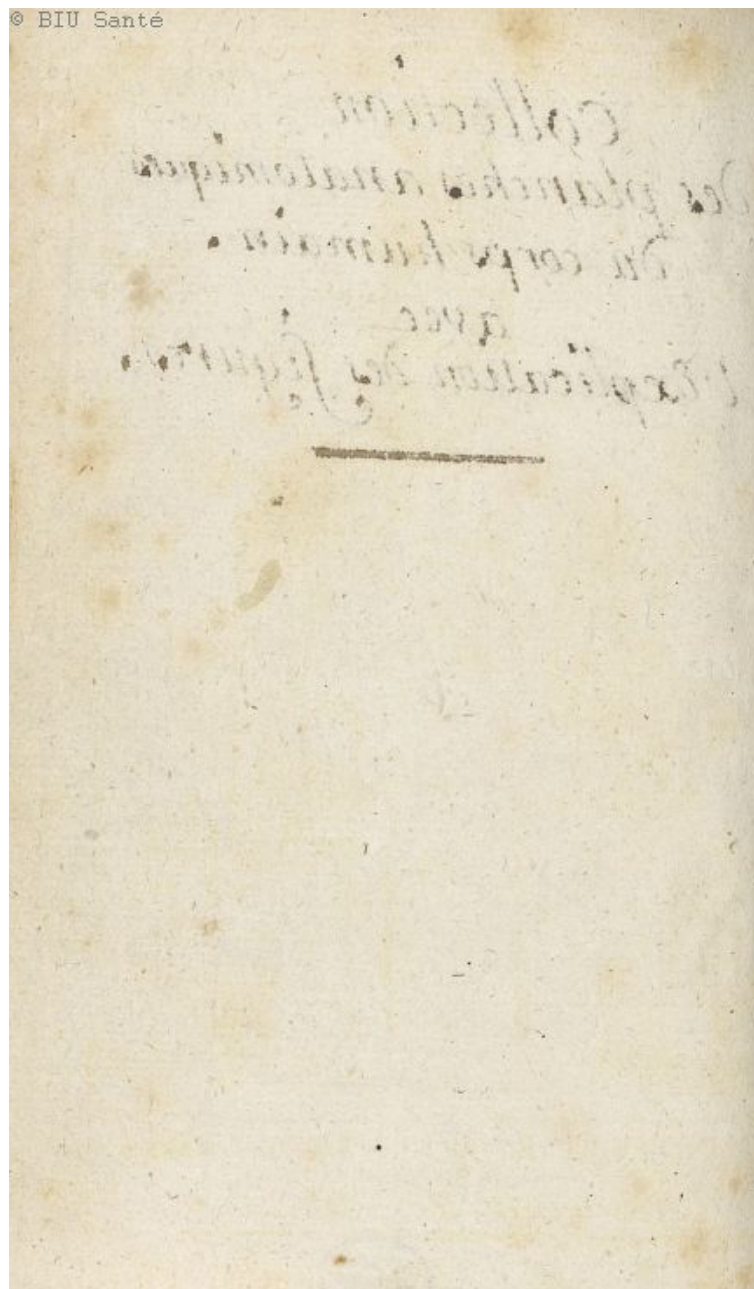 © BIU Santé
Collection
des planches anatomiques
du corps humain.
avec
l'Explication des figures.